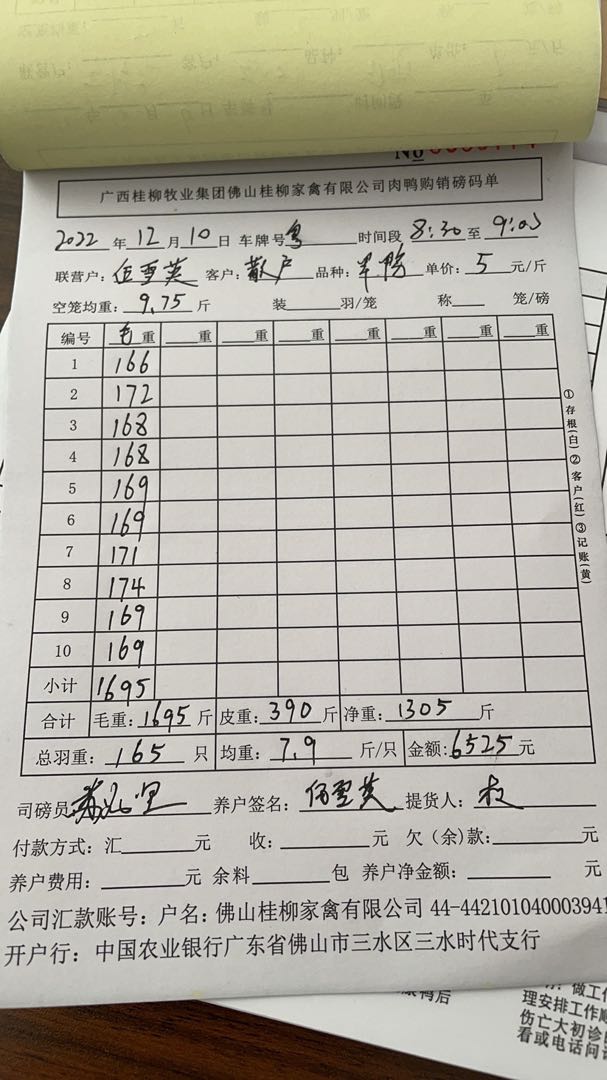 No
广西桂柳牧业集团佛山桂柳家禽有限公司肉鸭购销磅码单
2022 年 12 月 10 日 车牌号 粤 时间段 8:30 至 9:05
联营户: 伍雪英 客户: 散户 品种: 半鸭 单价: 5 元/斤
空笼均重: 9.75 斤 装 羽/笼 称 笼/磅
编号 毛重 重 重 重 重 重 重 重
1 166
2 172
3 168
4 168
5 169
6 169
7 171
8 174
9 169
10 169
小计 1695
合计 毛重: 1695 斤 皮重: 390 斤 净重: 1305 斤
总羽重: 165 只 均重: 7.9 斤/只 金额: 6525 元
①存根(白)②客户(红)③记账(黄)
司磅员 养户签名: 伍雪英 提货人:
付款方式: 汇 元 收: 元 欠(余)款:
养户费用: 元 余料 包 养户净金额: 元
公司汇款账号: 户名: 佛山桂柳家禽有限公司 44-44210104000394
开户行: 中国农业银行广东省佛山市三水区三水时代支行
做工作
理安排工作顺
伤亡大初诊
看或电话问